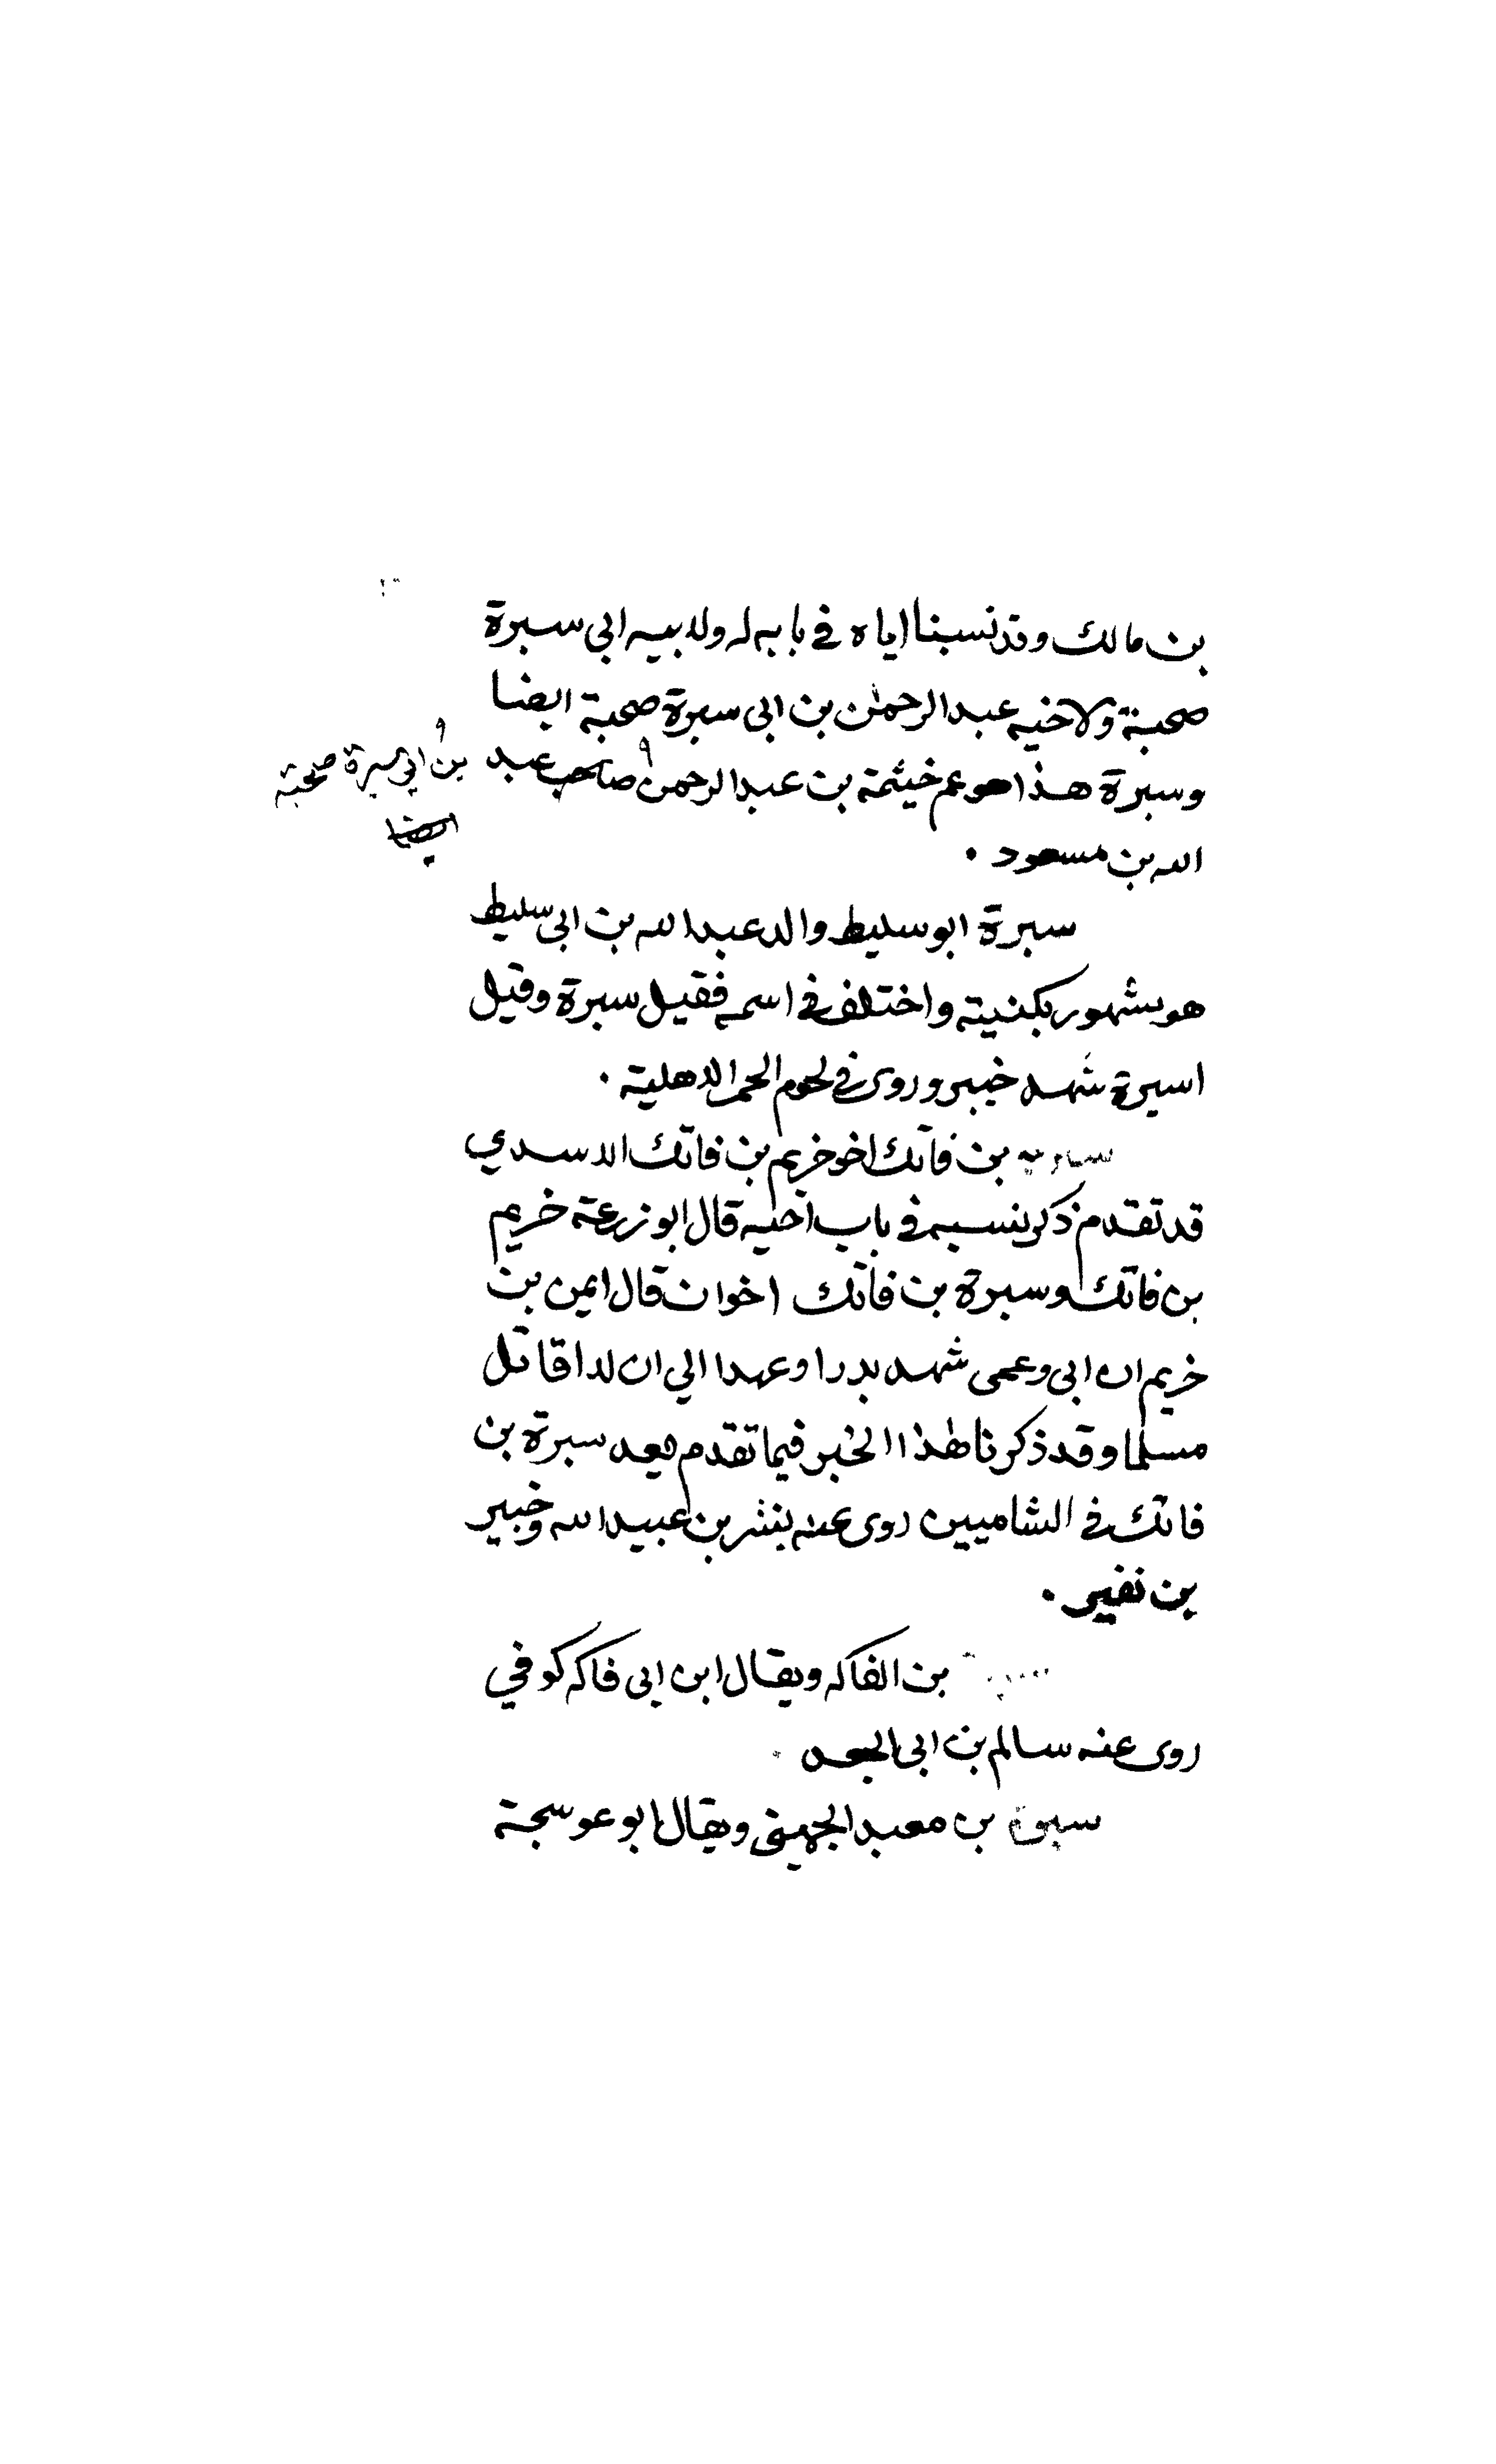 بن مالك وقد نسبنا اياه في بابه له ولابيه ابي سبرة
صحبة ولاخيه عبد الرحمٰن بن ابى سبرة صحبة ايضا
وسبرة هذا هو عم خيثمة بن عبد الرحمن صاحب عبد
بن ابي سبرة صحبة
ايضا
الله بن مسعود .
سبرة ابو سليط والد عبد الله بن ابى سليط
هو مشهور بكنيته واختلف في اسمه فقيل سبرة وقيل
اسيرة شهد خيبر وروى في لحوم الحمر الاهلية .
سبرة بن فاتك اخو خريم بن فاتك الاسدي
قد تقدم ذكر نسبه في باب اخيه قال ابو زرعة خريم
بن فاتك وسبرة بن فاتك اخوان قال ايمن بن
خريم ان ابى وعمى شهد بدرا وعهدا الي ان لا اقاتل
مسلما وقد ذكرنا هذا الخبر فيما تقدم يعد سبرة بن
فاتك في الشاميين روى عنه بشر بن عبيد الله وجبير
بن نفير .
بن الفاكه ويقال ابن ابى فاكه كوفي
روى عنه سالم بن ابى الجعد .
سبرة بن معبد الجهني ويقال ابو عوسجة